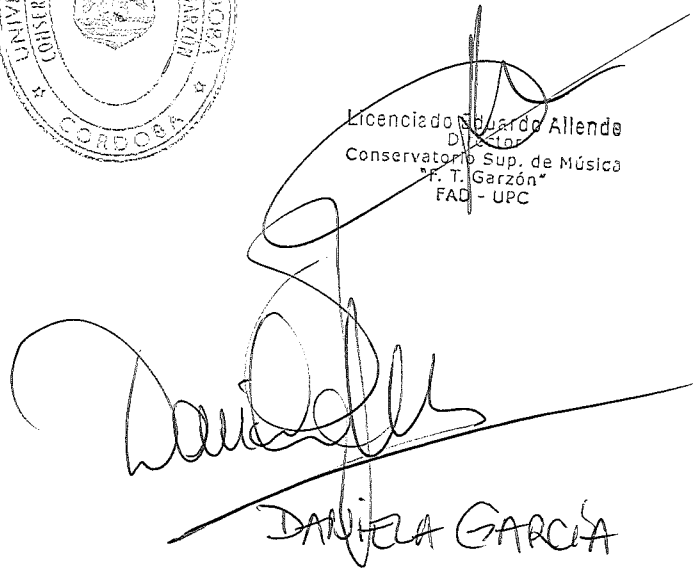 UNIV
CONSER
GARZÓN
DOBA
CORDOBA
Licenciado Eduardo Allende
Director
Conservatorio Sup. de Música
"F. T. Garzón"
FAD - UPC
DANIELA GARCÍA